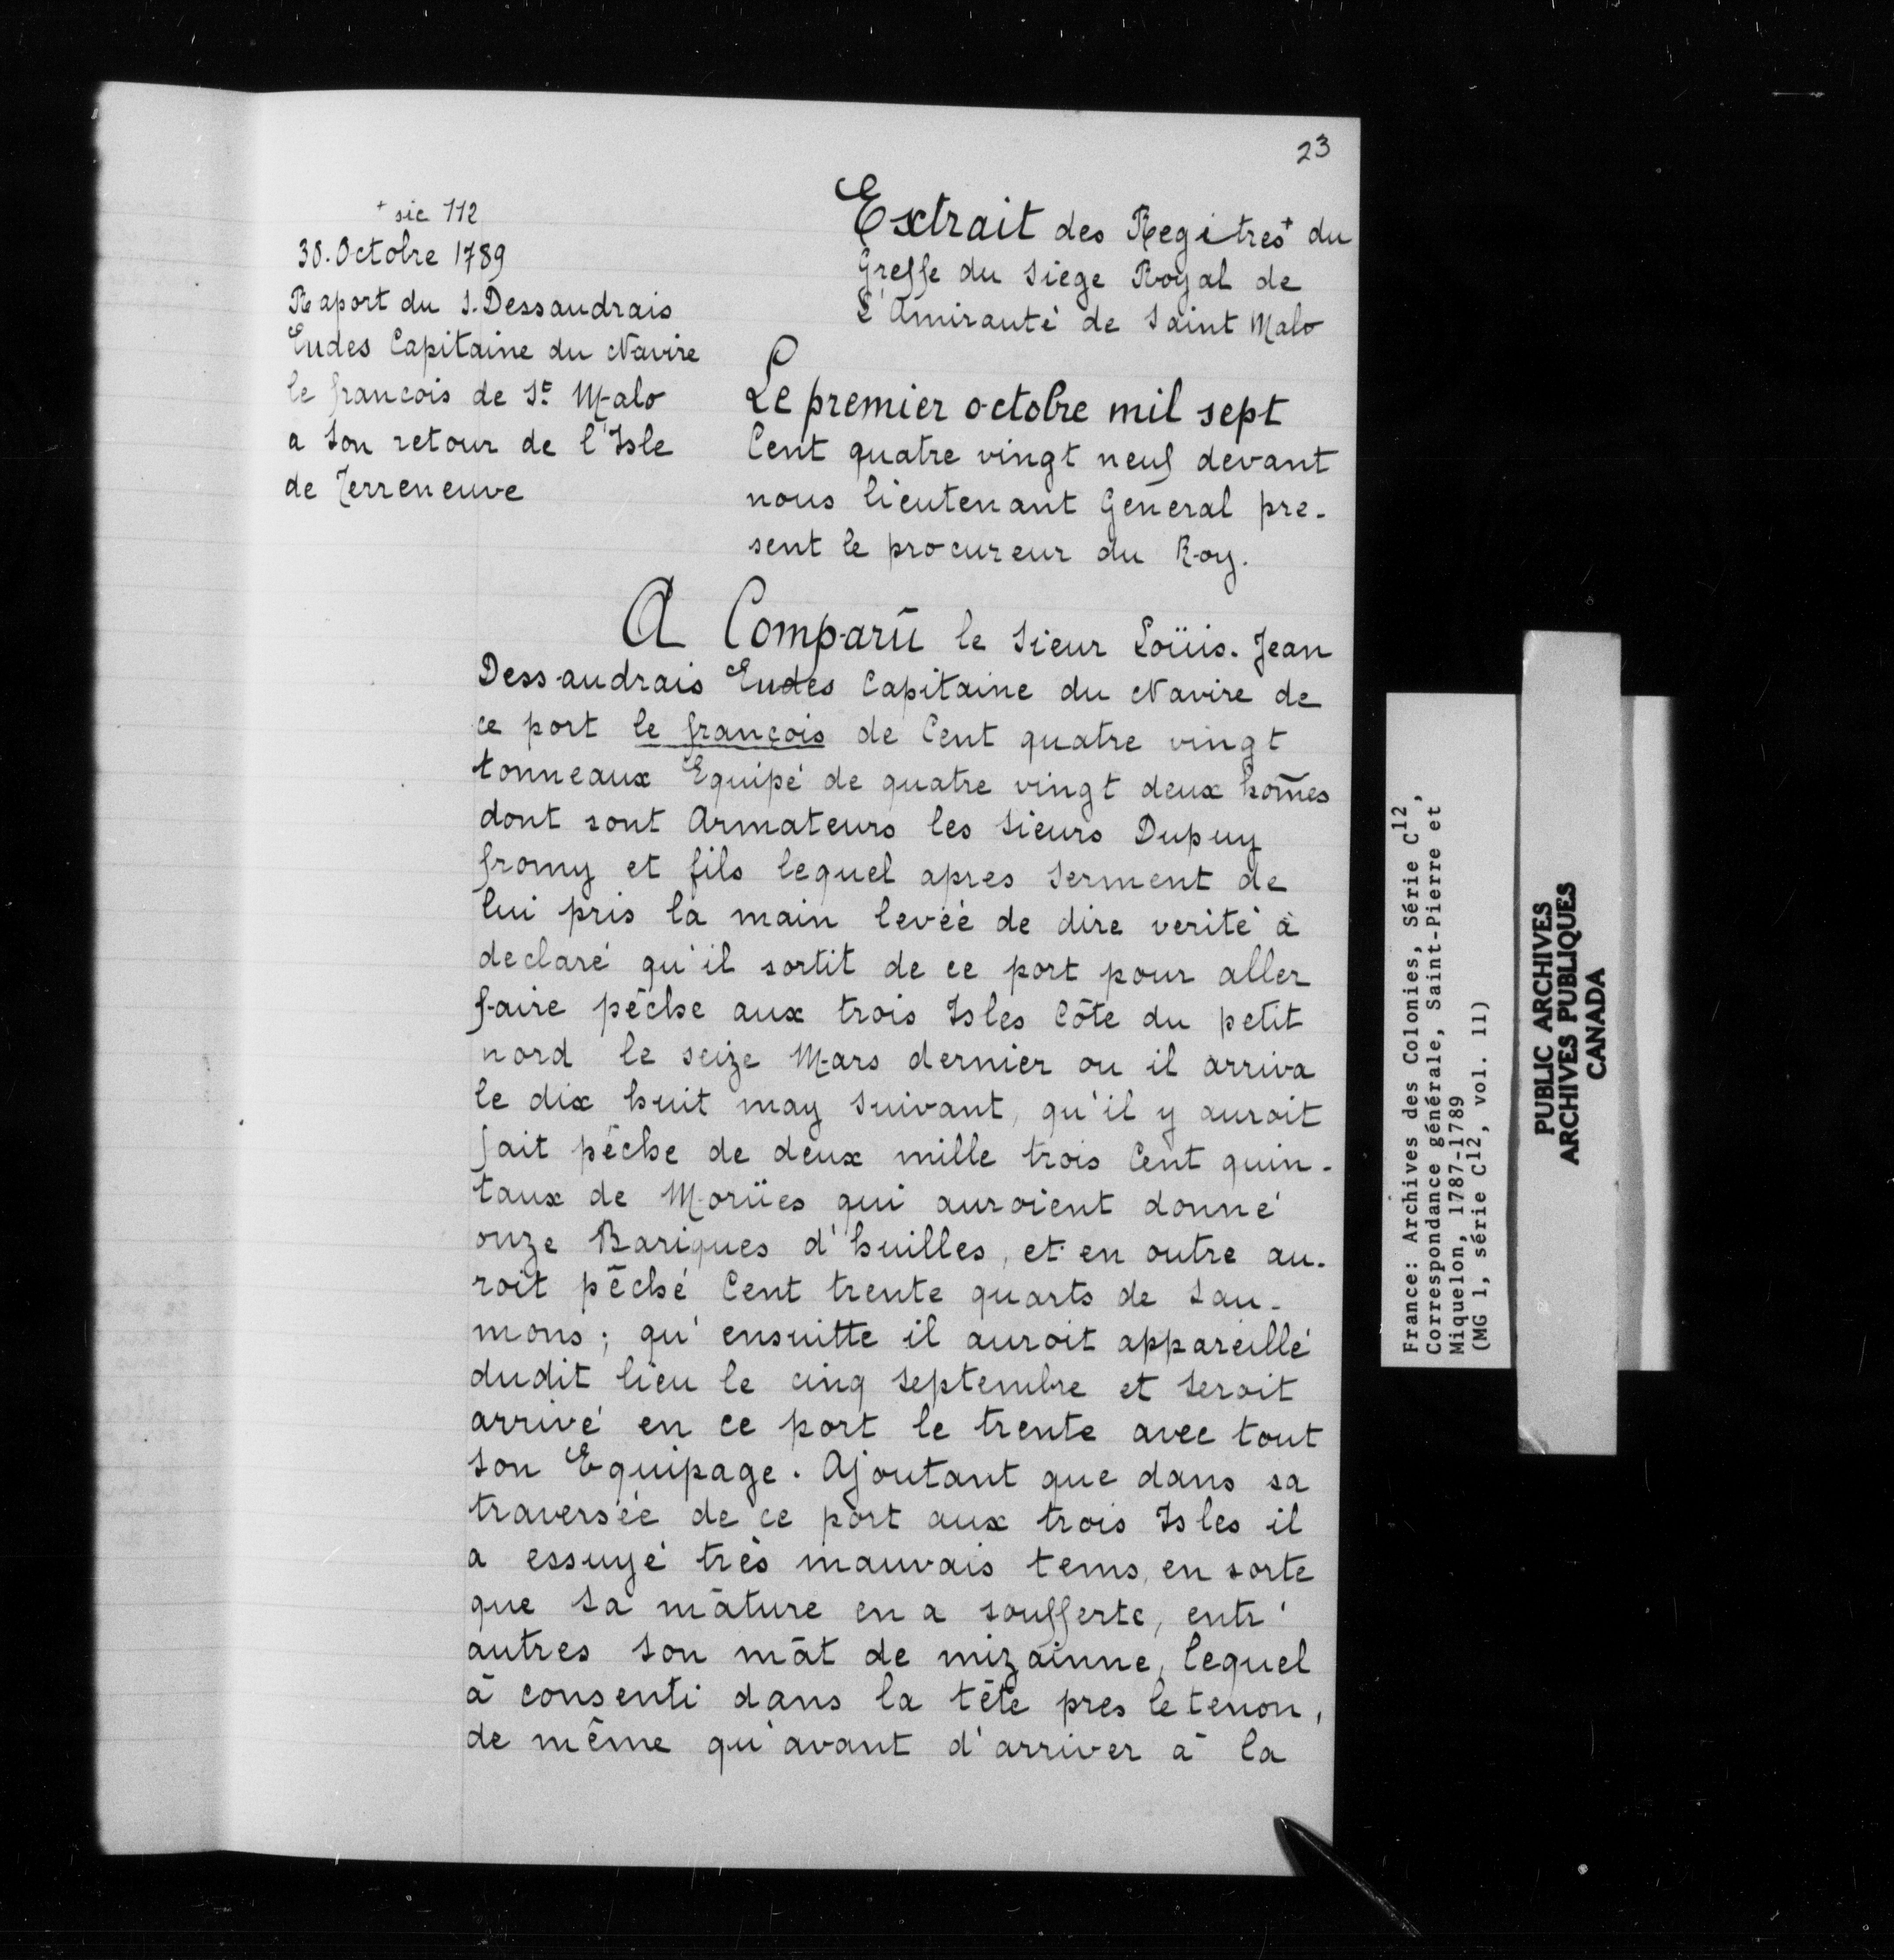 23
+ sic 112
30. Octobre 1789
Raport du S. Dessaudrais
Eudes Capitaine du Navire
le francois de St Malo
a Son retour de l'Isle
de Terreneuve
Extrait des Regitres+ du
Greffe du Siege Royal de
L'Amirauté de Saint Malo
Le premier octobre mil sept
Cent quatre vingt neuf devant
nous lieutenant General pre-
sent le procureur du Roy.
A Comparû le Sieur Loüis. Jean
Dessaudrais Eudes Capitaine du Navire de
ce port le françois de Cent quatre vingt
tonneaux Equipé de quatre vingt deux hom̃es
dont sont Armateurs les Sieurs Dupuy
fromy et fils lequel apres Serment de
lui pris la main levéé de dire verité à
declaré qu'il sortit de ce port pour aller
faire pêche aux trois Isles Côte du petit
nord le seize Mars dernier ou il arriva
le dix huit may Suivant, qu'il y auroit
fait pêche de deux mille trois Cent quin-
taux de Moruës qui auroient donné
onze Bariques d'huilles, et en outre au-
roit pêché Cent trente quarts de Sau-
mons; qu'ensuitte il auroit appareillé
dudit lieu le cinq Septembre et Seroit
arrivé en ce port le trente avec tout
Son Equipage. Ajoutant que dans sa
traversée de ce port aux trois Isles il
a essuyé très mauvais tems, en sorte
que Sa mâture en a soufferte, entr'
autres Son mât de mizainne, lequel
à consenti dans la tête pres le tenon,
de même qu'avant d'arriver à la
France: Archives des Colonies, Série C12,
Correspondance générale, Saint-Pierre et
Miquelon, 1787-1789
(MG 1, série C12, vol. 11)
PUBLIC ARCHIVES
ARCHIVES PUBLIQUES
CANADA